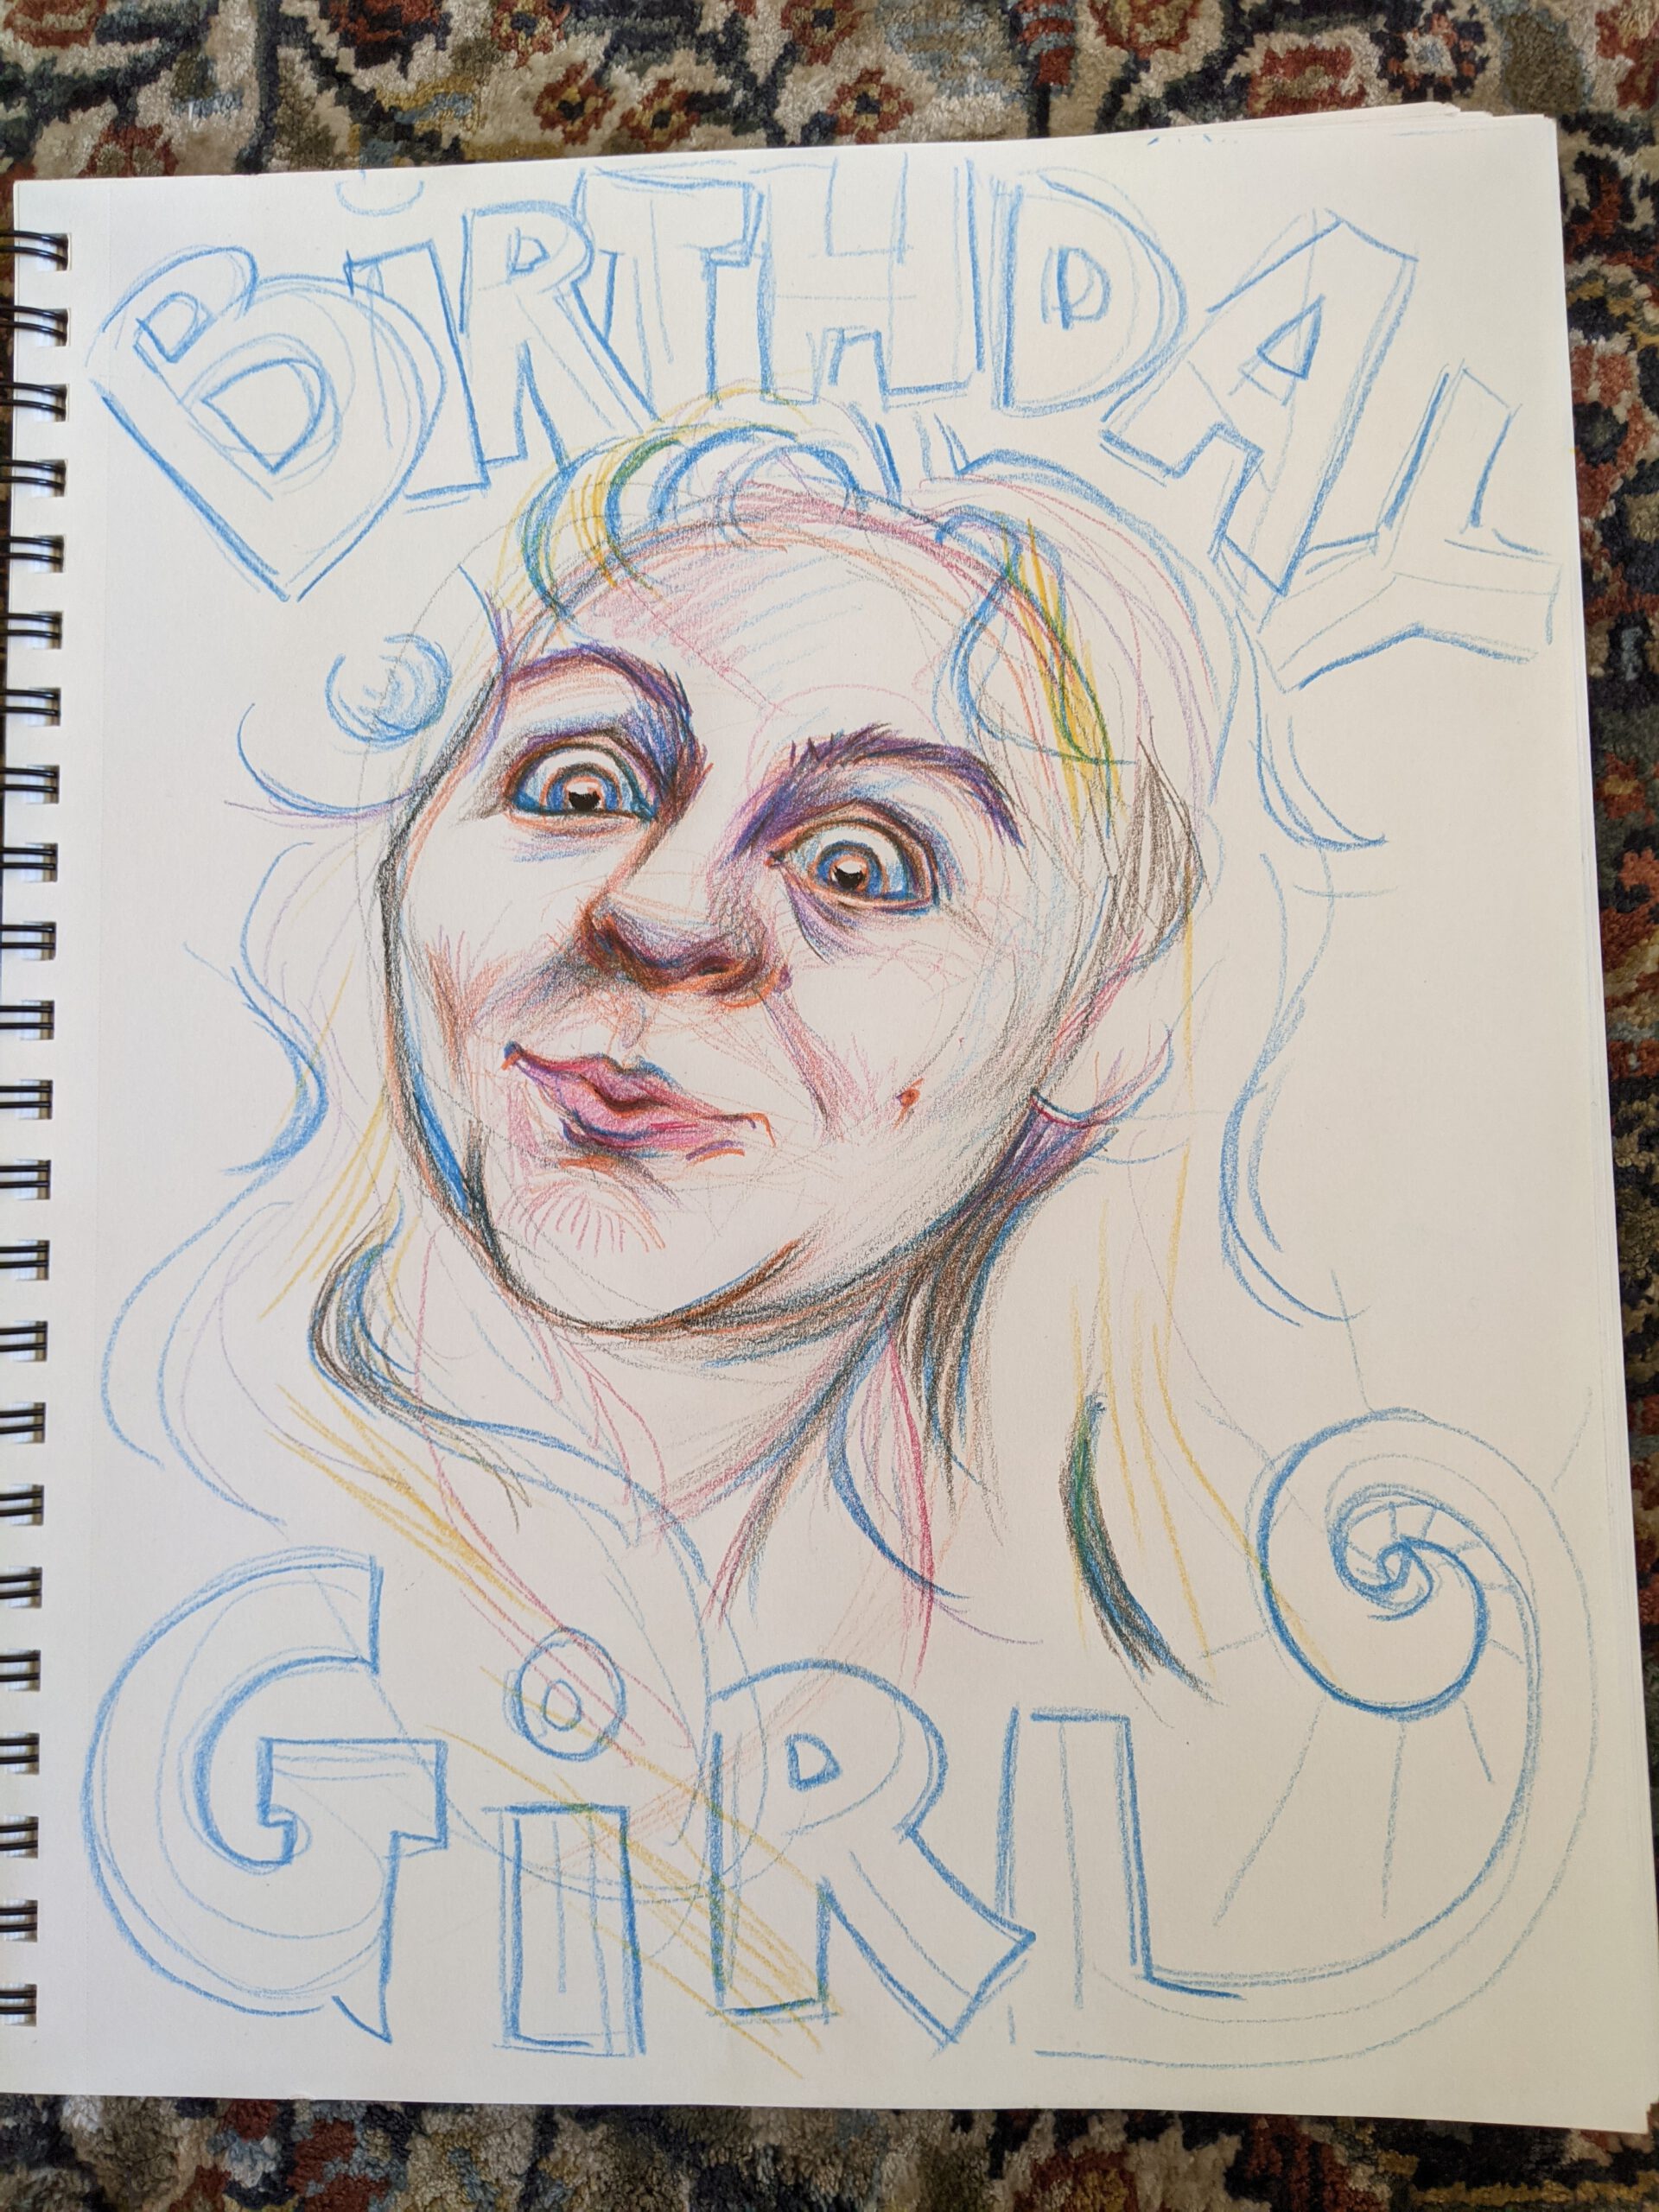 BiRTHDAY
GiRL